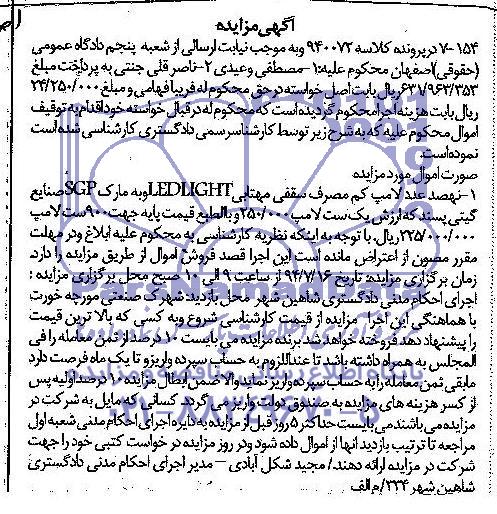 آگهی مزایده
۷-۱۵۴ در پرونده کلاسه ۹۴۰۰۷۲ و به موجب نیابت ارسالی از شعبه پنجم دادگاه عمومی
(حقوقی) اصفهان محکوم علیه: ۱-مصطفی وعیدی ۲-ناصر قلی جنتی به پرداخت مبلغ
۶۳۱/۹۶۳/۳۵۳ ریال بابت اصل خواسته در حق محکوم له فریبا فهامی و مبلغ ۲۴/۲۵۰/۰۰۰
ریال بابت هزینه اجرا محکوم گردیده است که محکوم له در قبال خواسته خود اقدام به توقیف
اموال محکوم علیه که به شرح زیر توسط کارشناس رسمی دادگستری کارشناسی شده است
نموده است.
صورت اموال مورد مزایده
۱-نهصد عدد لامپ کم مصرف سقفی مهتابی LEDLIGHT و به مارک SGP صنایع
گیتی پسند که ارزش یک ست لامپ ۲۵۰/۰۰۰ و بالطبع قیمت پایه جهت ۹۰۰ ست لامپ
۲۲۵/۰۰۰/۰۰۰ ریال. با توجه به اینکه نظریه کارشناسی به محکوم علیه ابلاغ و در مهلت
مقرر مصون از اعتراض مانده است این اجرا قصد فروش اموال از طریق مزایده را دارد.
زمان برگزاری مزایده: تاریخ ۹۴/۷/۱۶ از ساعت ۹ الی ۱۰ صبح محل برگزاری مزایده:
اجرای احکام مدنی دادگستری شاهین شهر محل بازدید: شهرک صنعتی مورچه خورت
با هماهنگی این اجرا مزایده از قیمت کارشناسی شروع و به کسی که بالاترین قیمت
را پیشنهاد دهد فروخته خواهد شد برنده مزایده می بایست ۱۰ درصد از ثمن معامله را فی
المجلس به همراه داشته باشد تا عنداللزوم به حساب سپرده واریز و تا یک ماه فرصت دارد
مابقی ثمن معامله را به حساب سپرده واریز نماید والا ضمن ابطال مزایده ۱۰ درصد اولیه پس
از کسر هزینه های مزایده به صندوق دولت واریز می گردد. کسانی که مایل به شرکت در
مزایده می باشند می بایست حداکثر ۵ روز قبل از مزایده به دایره اجرای احکام مدنی شعبه اول
مراجعه تا ترتیب بازدید آنها از اموال داده شود و در روز مزایده درخواست کتبی خود را جهت
شرکت در مزایده ارائه دهند/ مجید شکل آبادی – مدیر اجرای احکام مدنی دادگستری
شاهین شهر ۲۳۴/م الف
پایگاه اطلاع رسانی مناقصه و مزایده
۰۲۱-۸۸۳۴۹۶۷۰-۵